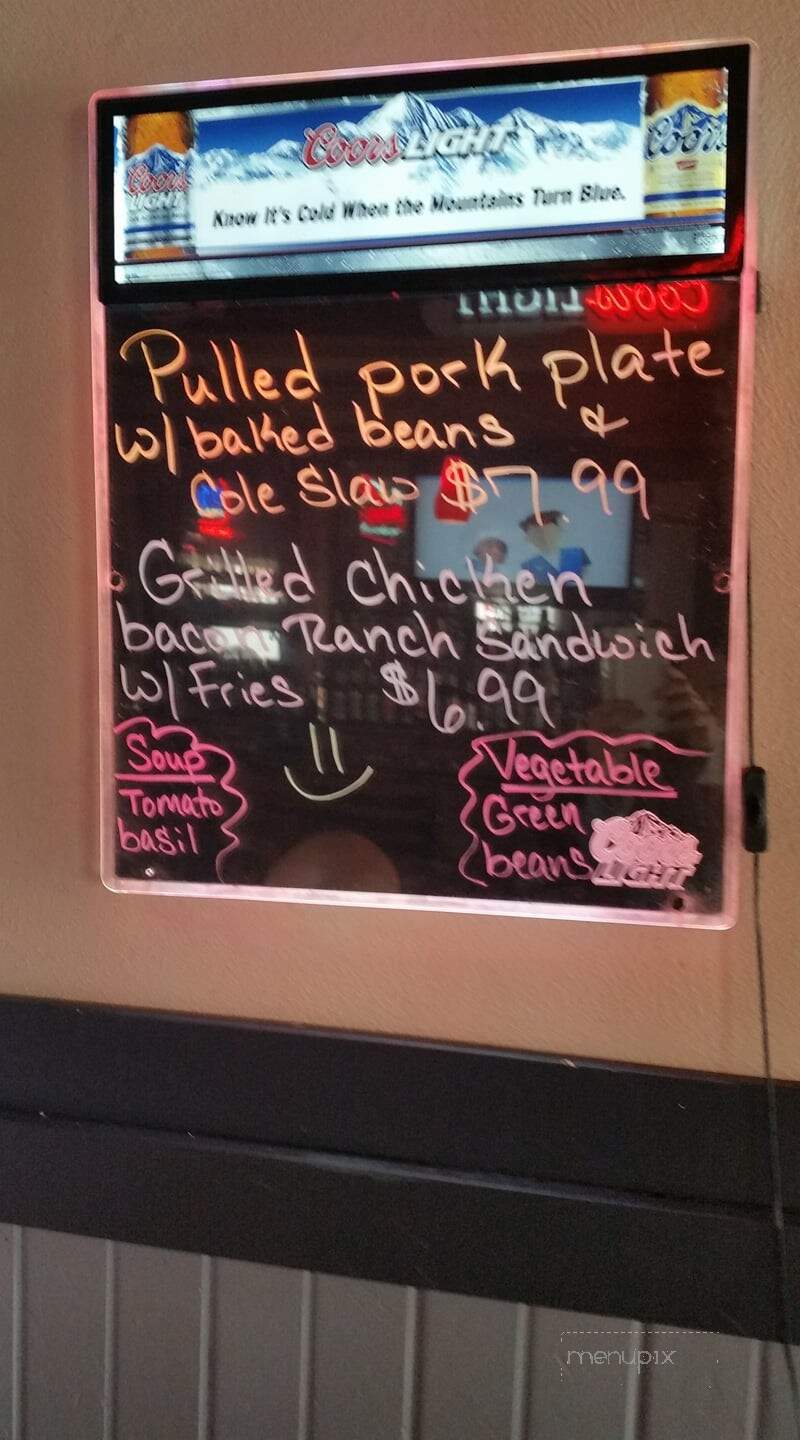 Coors LIGHT
Coors LIGHT
Coors
Know It's Cold When the Mountains Turn Blue.
Coors LIGHT
Pulled pork plate
w/ baked beans &
Cole Slaw $7.99
Grilled chicken
bacon Ranch Sandwich
w/ Fries $6.99
Soup
Tomato
basil
Vegetable
Green
beans
Coors
LIGHT
menupix